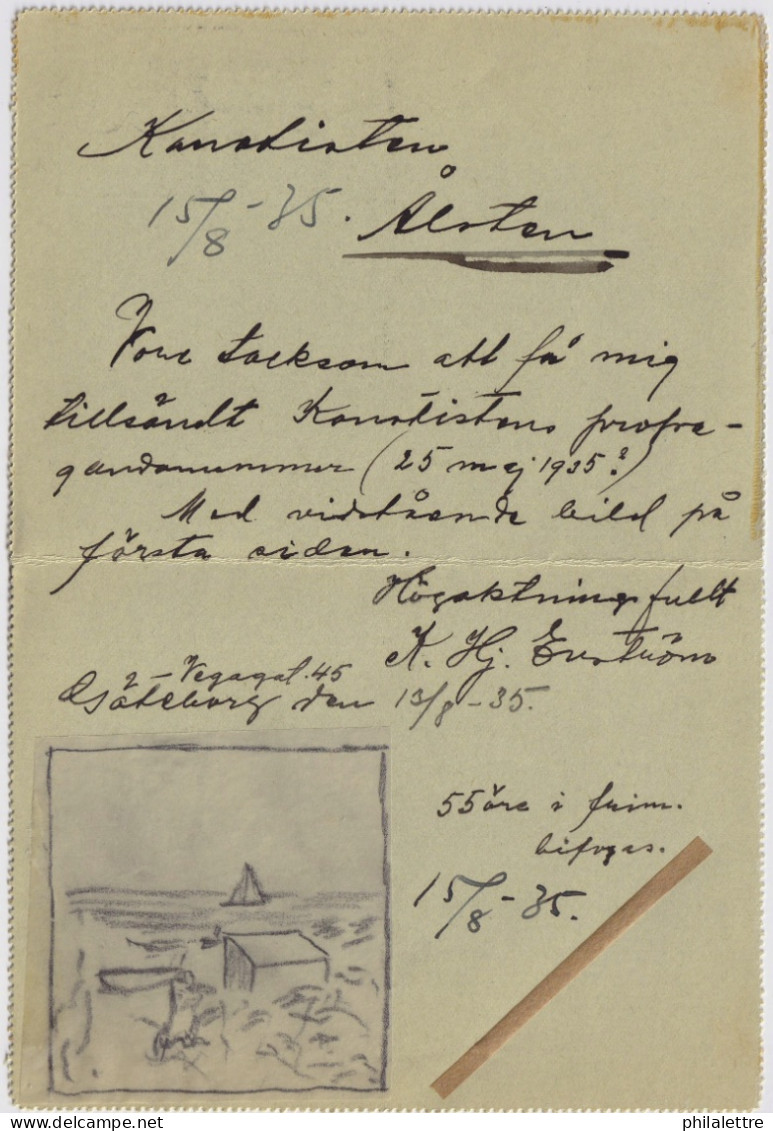 Kanotisten
15/8-35. Ålsten
Vore tacksam att få mig
tillsändt Kanotistens propa-
gandanummer (25 maj 1935?)
Med vidstående bild på
första sidan.
Högaktningsfullt
K. Hj.
2 - Vegagat. 45
Göteborg den 13/8-35.
55 öre i frim.
bifogas.
15/8-35.
delcampe.net
philalettre